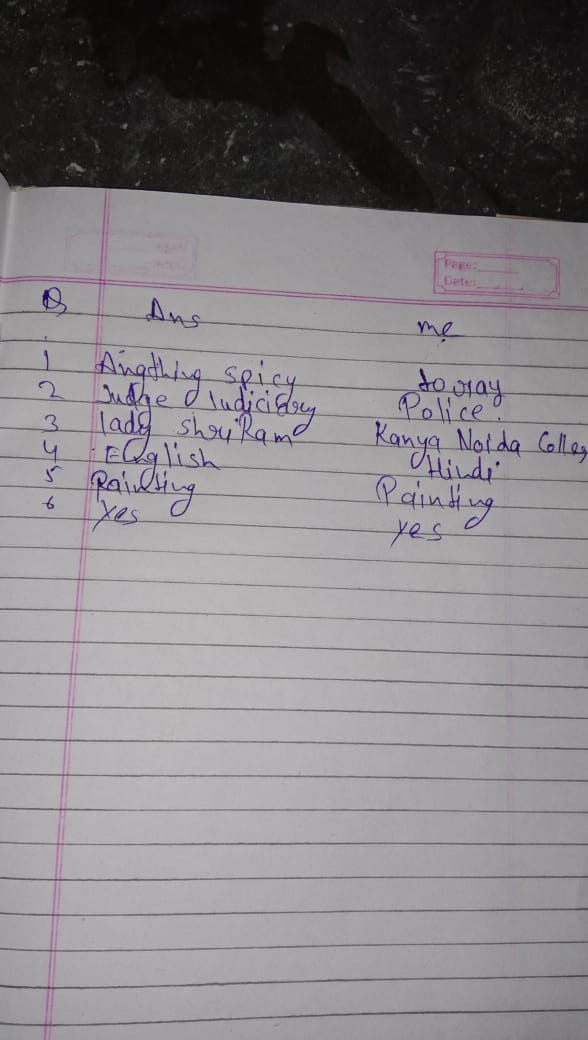 Page:
Date:
Q Ans me
1 Angthing spicy to oray
2 Judge Judiciary Police.
3 lady shri Ram Kanya Noida Colleg
4 English Hindi
5 Painting Painting
6 Yes yes